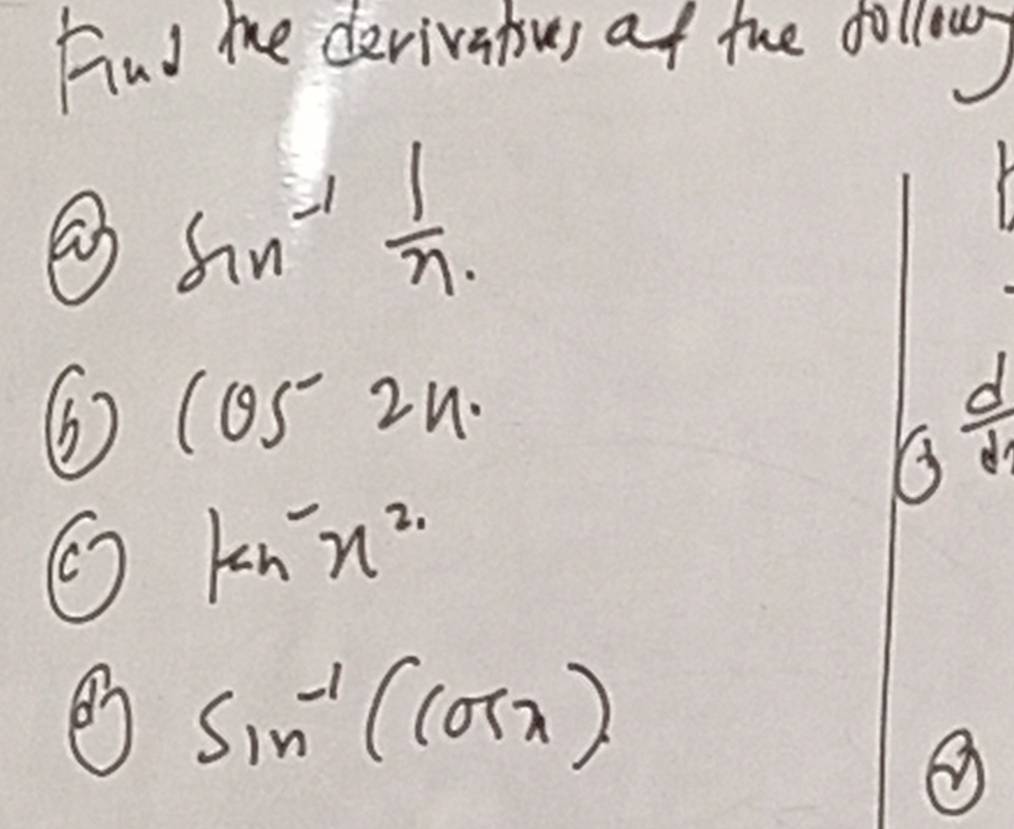 Find the derivatives of the following
(a) sin⁻¹ 1/x.
(b) cos⁻ 2x.
(c) tan⁻ x².
(d) sin⁻¹ (cosx)
d